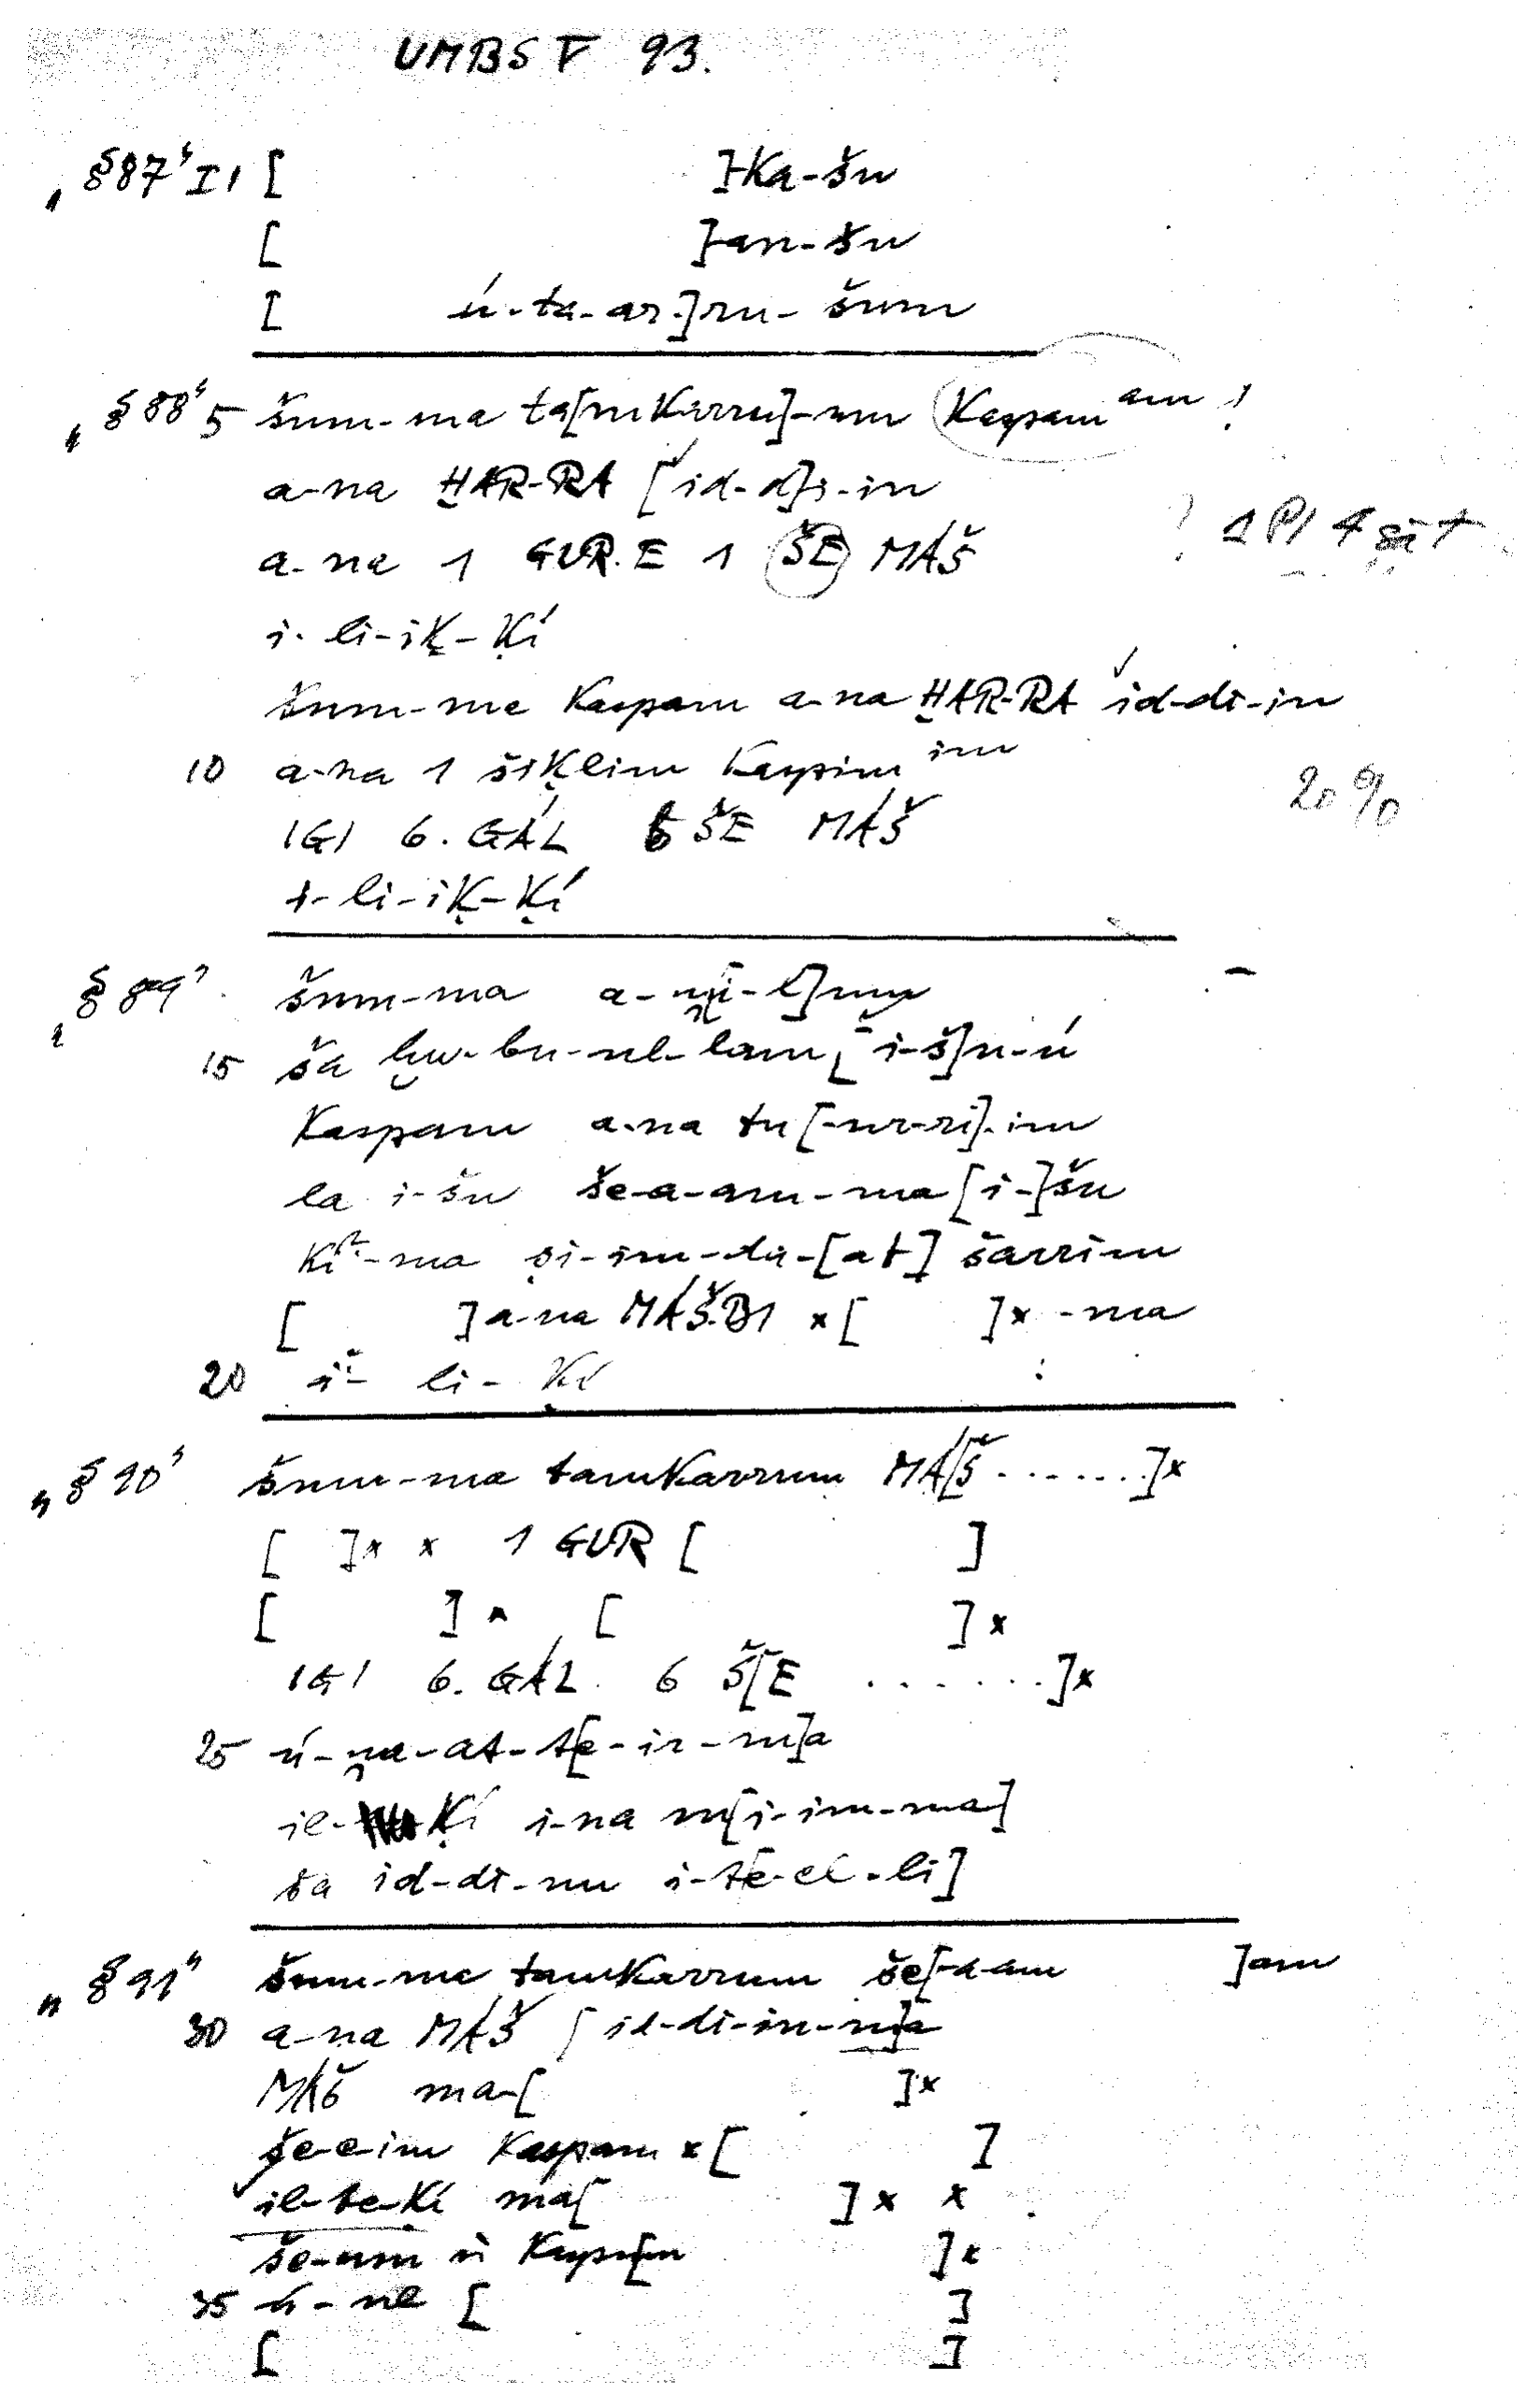 UMBS V 93.
„§87“ I 1 [ ]-ka-šu
[ ]-an-šu
[ ú-ta-ar-]ru-šum
„§88“ 5 šum-ma ta[mkarru]-um kaspam am !
a-na ḪAR-RA [id-d]i-in
a-na 1 GUR.E 1 ŠE MÁŠ ? 1 PI 4 sāt
i-li-iḳ-ḳí
šum-ma kaspam a-na ḪAR-RA id-di-in
10 a-na 1 šiḳlim kaspim im
IGI 6.GÁL 6 ŠE MÁŠ 20 %
i-li-iḳ-ḳí
„§89“ šum-ma a-u̯i[-l]um
15 ša ḫu-bu-ul-lam [i-š]u-ú
kaspam a-na tu[-ur-ri]-im
la i-šu še-a-am-ma [i-]šu
ki-ma ṣi-im-da-[at] šarrim
[ ] a-na MÁŠ.BI x [ ]x -ma
20 i- li- ḳí
„§90“ šum-ma tamkarrum MÁ[Š.......]x
[ ]x x 1 GUR [ ]
[ ] x [ ] x
IGI 6.GÁL 6 Š[E ......]x
25 ú-u̯a-at-t[e-ir-m]a
il-ḳí i-na m[i-im-ma]
ša id-di-nu i-t[e-el-li]
„§91“ šum-ma tamkarrum še[-a-am ]am
30 a-na MÁŠ [id-di-in-m]a
MÁŠ ma-[ ]x
še-e-im kaspam x [ ]
il-te-ḳí ma[ ] x x
še-um ù kasp[im ] x
35 ú-ul [ ]
[ ]